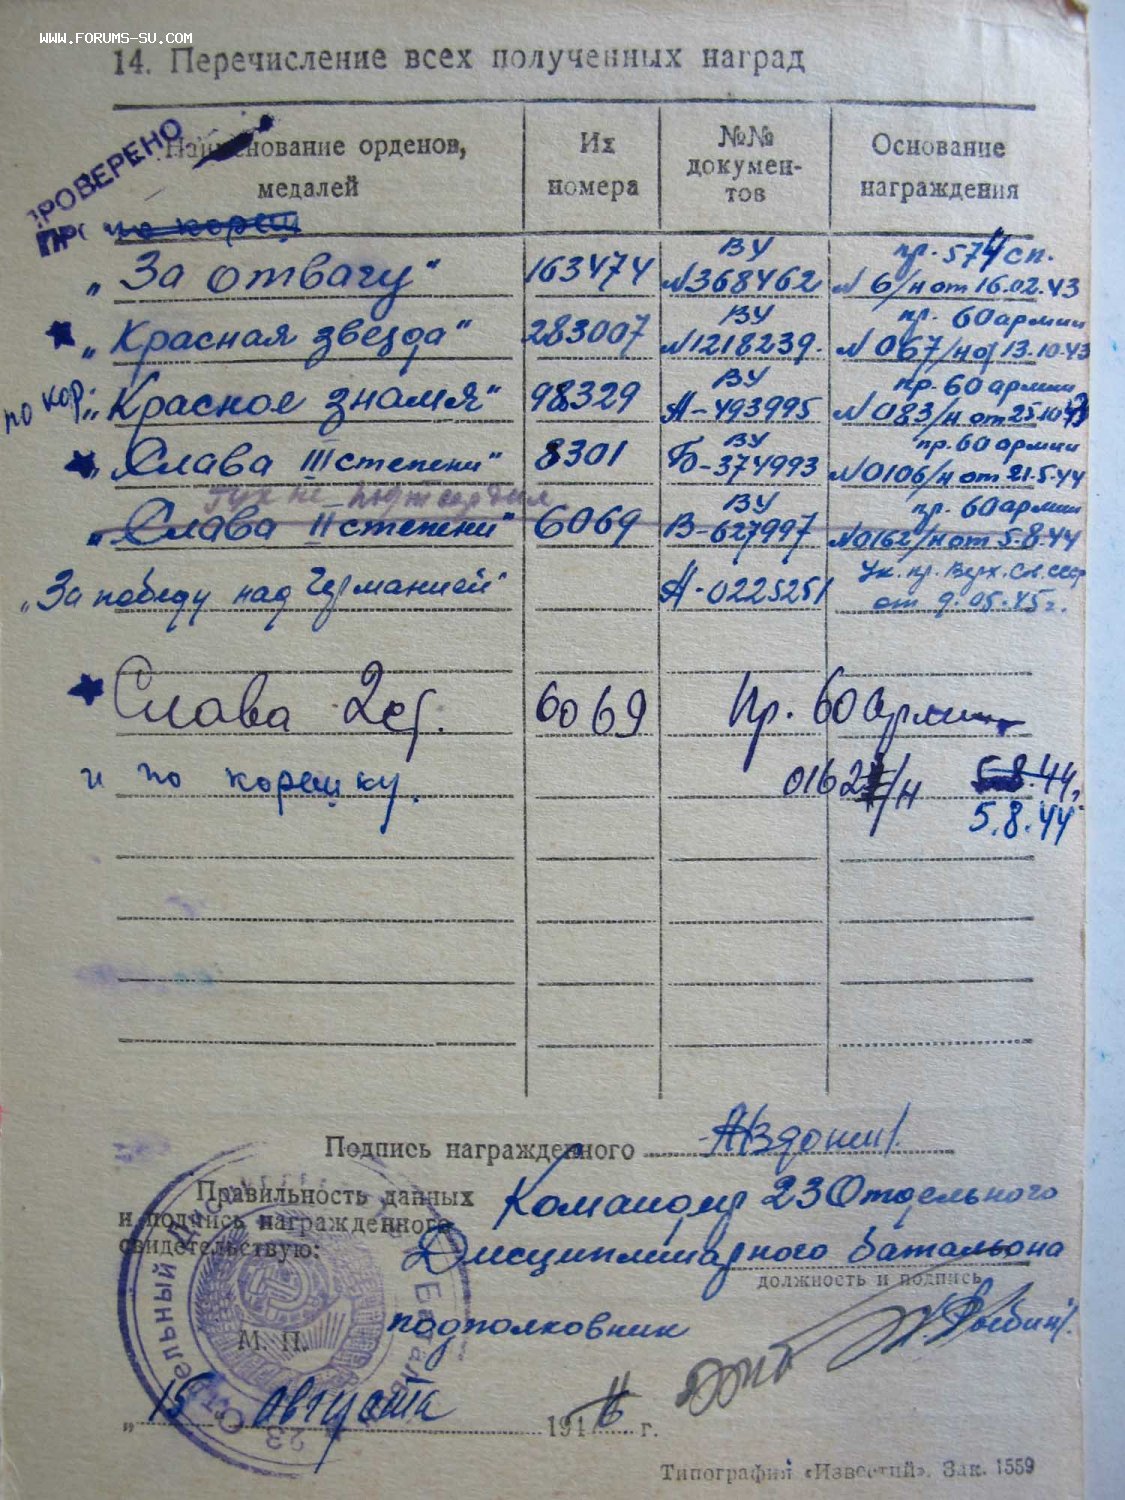 WWW.FORUMS-SU.COM
14. Перечисление всех полученных наград
ПРОВЕРЕНО
Наименование орденов, медалей
Их номера
№№ документов
Основание награждения
по кореш
„За отвагу" 163474 ВУ №368462 пр. 574 сп. № 6/н от 16.02.43
„Красная звезда" 283007 ВУ №1218239. пр. 60 армии № 067/н от 13.10.43
по кор. „Красное знамя" 98329 ВУ А-493995 пр. 60 армии № 083/н от 25.10.43
„Слава III степени" 8301 ВУ Б-374993 пр. 60 армии №0106/н от 21.5.44
ГУК не подтвердил
„Слава II степени" 6069 ВУ В-627997 пр. 60 армии №0162/н от 5.8.44
„За победу над Германией" А-0225251 Ук. пр. Верх. Сов. СССР от 9.05.45г.
Слава 2 ст. 6069 Пр. 60 армии
и по корешку. 0162/н 5.8.44,
5.8.44
Подпись награжденного
Правильность данных и подпись награжденного свидетельствую:
Командир 23 Отдельного
Дисциплинарного батальона
должность и подпись
подполковник
М. П.
„15 августа 1946 г.
23 Отдельный
Батальон
Типография «Известий». Зак. 1559